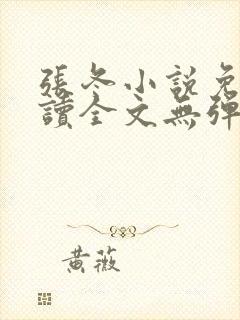 張冬小説免
讀全文無彈
黃薇